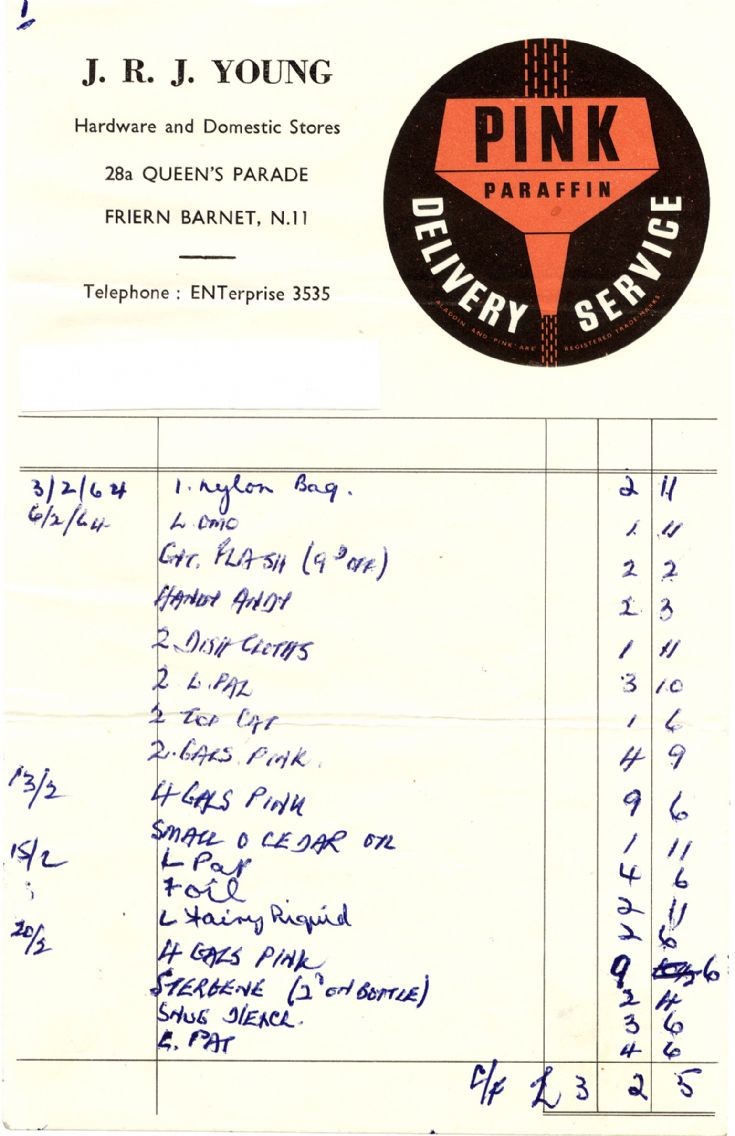 1
J. R. J. YOUNG
Hardware and Domestic Stores
28a QUEEN'S PARADE
FRIERN BARNET, N.11
Telephone : ENTerprise 3535
PINK
PARAFFIN
DELIVERY SERVICE
ALADDIN AND PINK ARE REGISTERED TRADE MARKS
3/2/64 1. Nylon Bag. 2 11
6/2/64 L OMO 1 11
GNT. FLASH (9D OFF) 2 2
HANDY ANDY 2 3
2 DISH CLOTHS 1 11
2 L. PAL 3 10
2 TOP CAT 1 6
2. GALS PINK. 4 9
13/2 4 GALS PINK 9 6
SMALL O CEDAR OIL 1 11
15/2 L Pat 4 6
Foil 2 11
L Fairy Liquid 2 6
20/2 4 GALS PINK 9 6
STERGENE (2D ON BOTTLE) 2 4
3 6
L. PAT 4 6
C/F £ 3 2 5